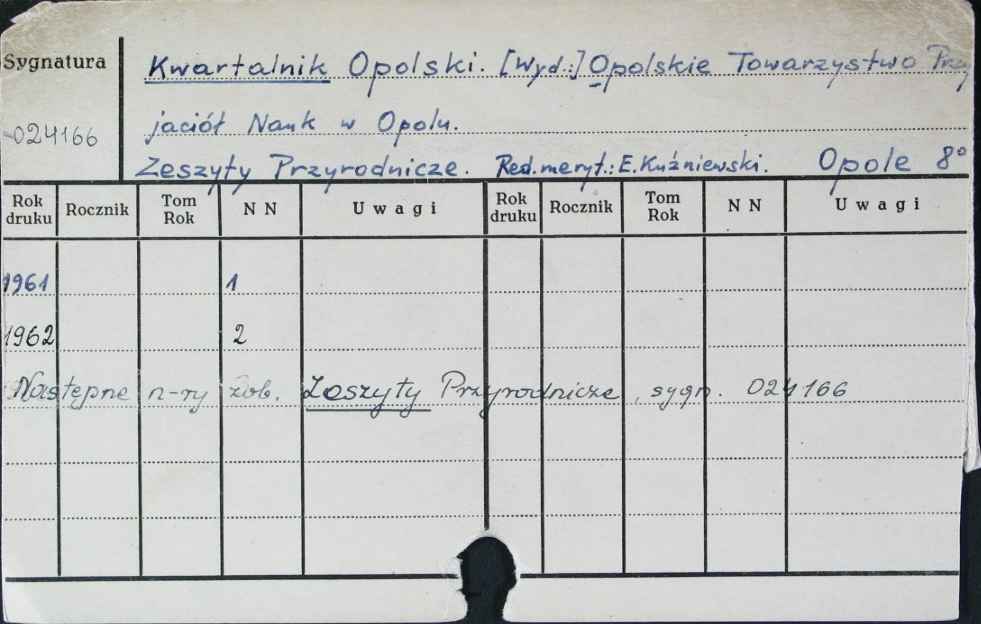 Sygnatura
Kwartalnik Opolski. [Wyd.:] Opolskie Towarzystwo Przy
jaciół Nauk w Opolu.
-024166
Zeszyty Przyrodnicze. Red. meryt.: E. Kuźniewski. Opole 8°
Rok druku Rocznik Tom Rok NN Uwagi Rok druku Rocznik Tom Rok NN Uwagi
1961 1
1962 2
Następne n-ry zob. Zeszyty Przyrodnicze, sygn. 024166